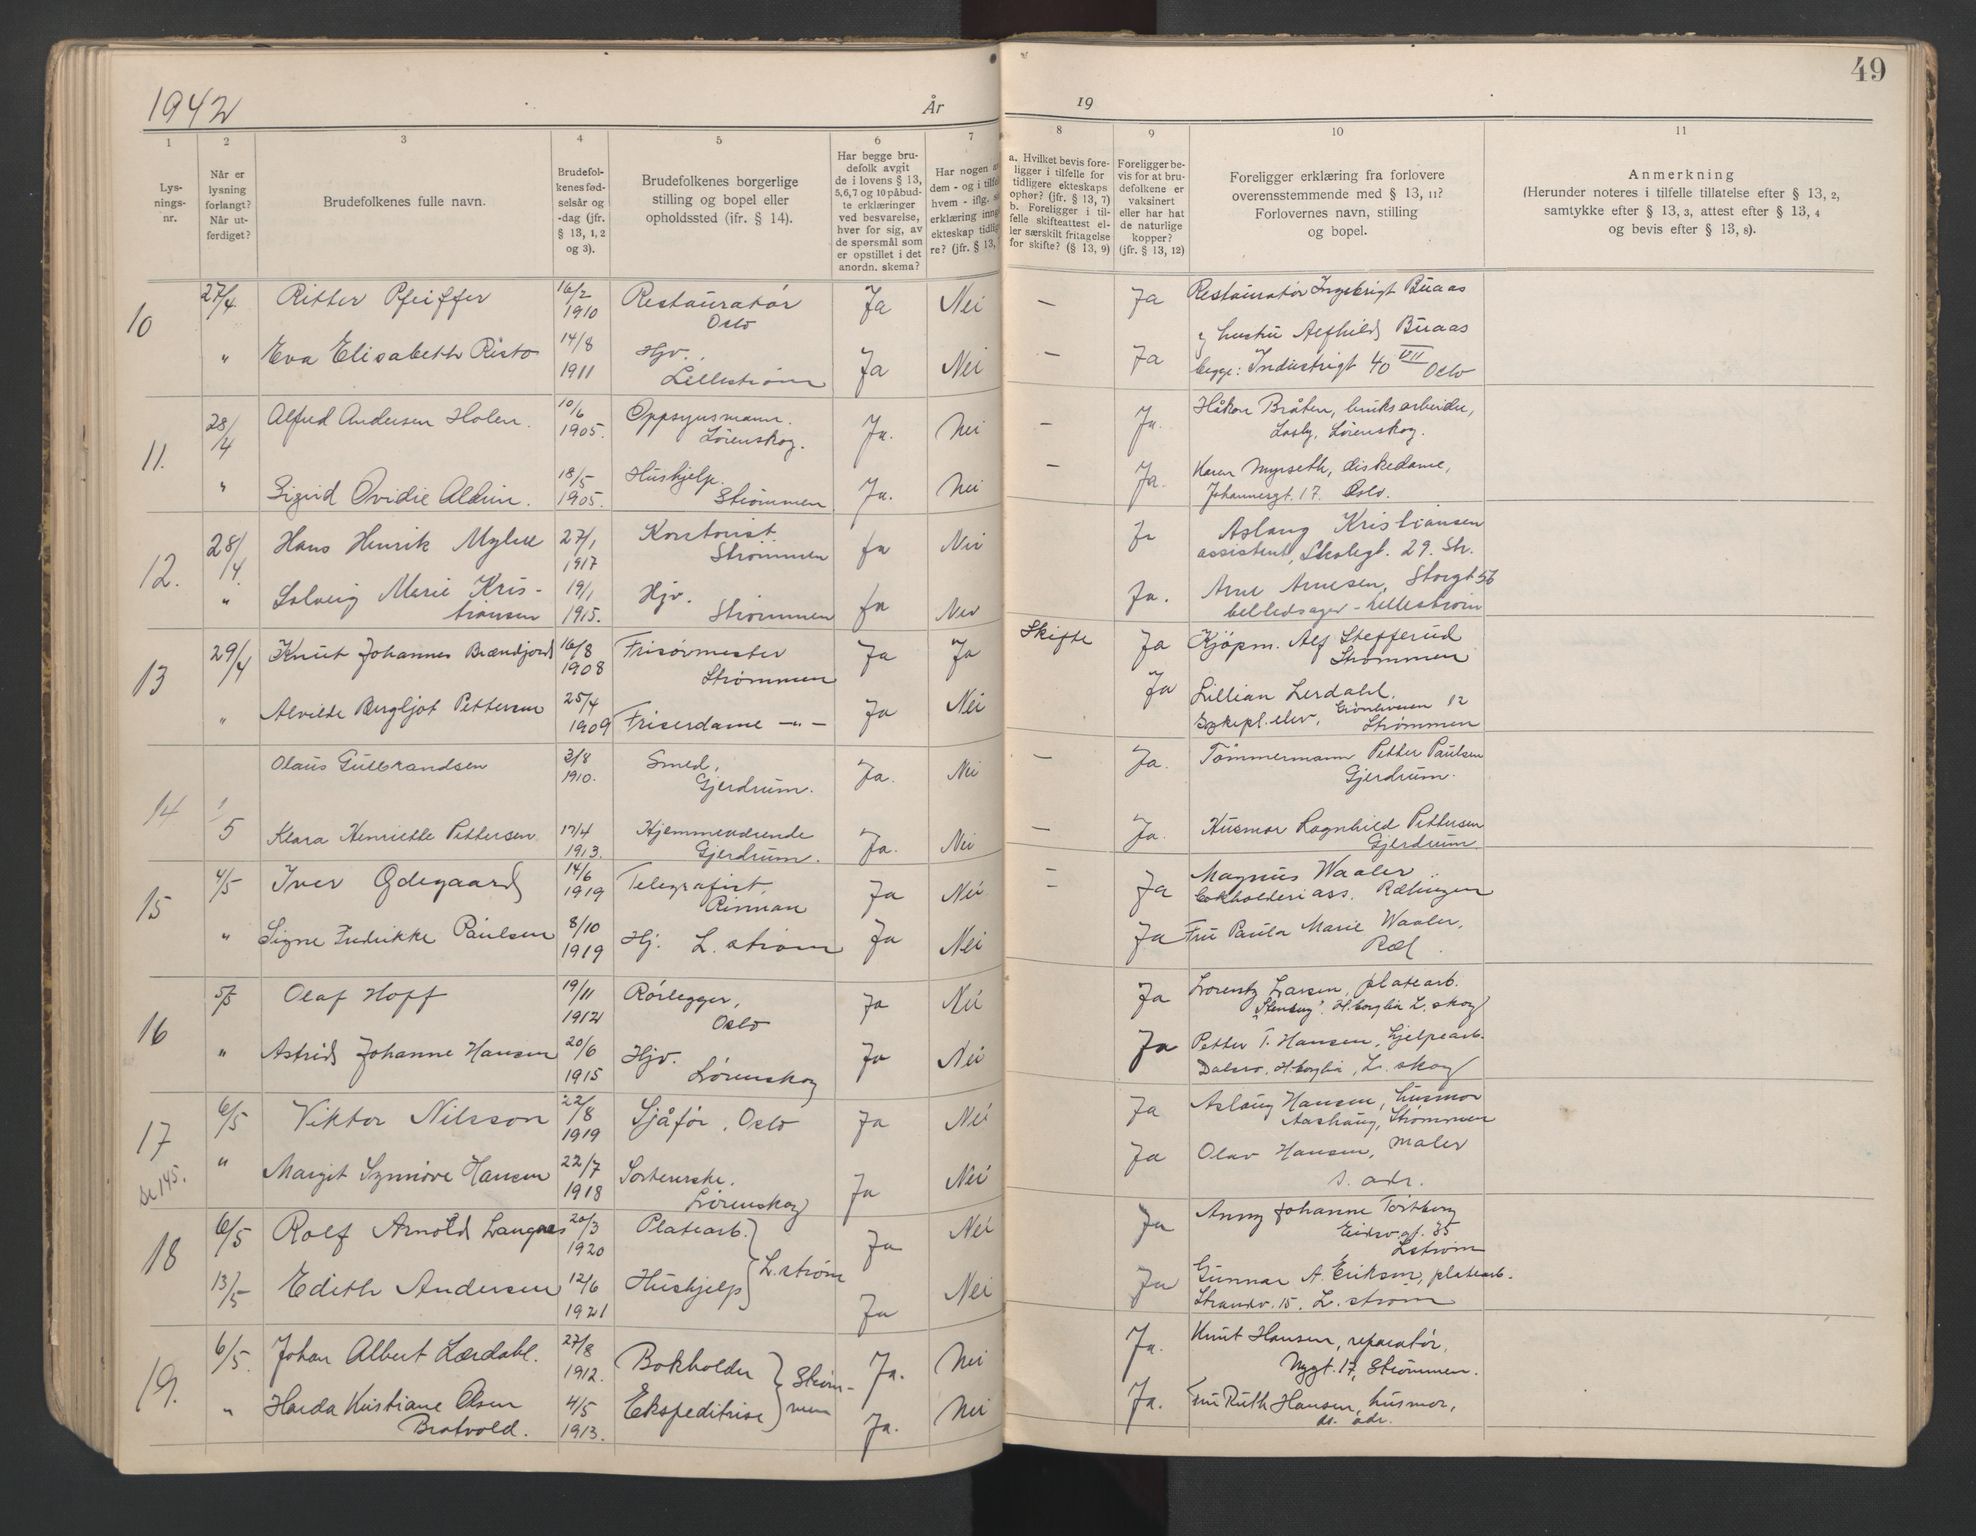 49
1942
År
19
1
2
3
4
5
6
7
8
9
10
11
Lys-
nings-
nr.
Når er
lysning
forlangt?
Når ut-
ferdiget?
Brudefolkenes fulle navn.
Brudefol-
kenes fød-
selsår og
-dag (jfr.
§ 13, 1, 2
og 3).
Brudefolkenes borgerlige
stilling og bopel eller
opholdssted (ifr. § 14).
Har begge bru-
defolk avgit
de i lovens § 13,
5,6,7 og 10 påbud-
te erklæringer
ved besvarelse,
hver for sig, av
de spørsmål som
er opstillet i det
anordn. skema?
Har nogen a
dem - og i tilf
hvem - iflg. s
erklæring inng
ekteskap tidlig
re? (jfr. § 13,
a. Hvilket bevis fore-
ligger i tilfelle for
tidligere ekteskaps
ophør? (jfr. § 13, 7)
b. Foreligger i til-
felle skifteattest el-
ler særskilt fritagelse
for skifte? (§ 13, 9)
Foreligger be-
vis for at bru-
defolkene er
vaksinert
eller har hat
de naturlige
kopper?
(jfr. § 13, 12)
Foreligger erklæring fra forlovere
overensstemmende med § 13, 11?
Forlovernes navn, stilling
og bopel.
Anmerkning
(Herunder noteres i tilfelle tillatelse efter § 13, 2,
samtykke efter § 13, 3, attest efter § 13, 4
og bevis efter § 13, 8).
10 27/4 Ritter Pfeiffer 16/2 1910 Restauratør Oslo Ja Nei — Ja Restauratør Ingebrigt Buaas
" Eva Elisabeth Risto 14/8 1911 Hjv. Lillestrøm Ja Nei — Ja og hustru Alfhild Buaas
begge: Industrigt 40 VII Oslo
11. 28/4 Alfred Andersen Holen. 10/6 1905. Oppsynsmann. Lørenskog. Ja. Nei — Ja. Håkon Bråten, bruksarbeider,
Losby, Lørenskog.
" Sigrid Ovidie Aldrin. 18/5 1905. Hushjelp. Strømmen Ja. Nei — Ja. Karen Myrseth, diskedame,
Johannesgt. 17. Oslo.
12. 28/4. Hans Henrik 27/1 1917 Kontorist. Strømmen Ja Nei Ja Aslaug Kristiansen
assistent, Skolegt. 29. Str.
" Solveig Marie Kris-
tiansen 19/1 1915. Hjv. Strømmen Ja Nei Ja. Arne Arnesen, Storgt 56
belledsager - Lillestrøm
13 29/4 Knut Johannes Brændjord 16/8 1908 Frisørmester Strømmen Ja Ja Skifte Ja Kjøpm. Alf Stefferud
Strømmen
" Alvilde Bergljot Pettersen 25/4 1909 Friserdame —"— Ja Nei Ja Lillian Lerdahl.
Sykepl. elev, 12
Strømmen
14 1/5 Olaus Gulbrandsen 3/8 1910. Smed, Gjerdrum. Ja. Nei — Ja. Tømmermann Petter Paulsen
Gjerdrum.
Klara Henriette Pettersen 17/4 1913. Hjemmeværende Gjerdrum. Ja. Nei — Ja. Husmor Ragnhild Pettersen
Gjerdrum.
15 4/5 Iver Ødegaard 14/6 1919 Telegrafist, Rinnan Ja Nei — Ja Magnus Waaler
bokholderiass. Rælingen
" Signe Fredrikke Paulsen 8/10 1919 Hj. L. strøm Ja Nei — Ja Fru Paula Marie Waaler,
Ræl.
16 5/5 Olaf Hoff 19/11 1912 Rørlegger, Oslo Ja Nei Ja Lorentz Larsen, platearb.
H.borglia L. skog
" Astrid Johanne Hansen 20/6 1915 Hjv. Lørenskog Ja Nei Ja Petter T. Hansen, hjelpearb.
Dalsro, H.borglia, L. skog
17 6/5 Viktor Nilsson 22/8 1919 Sjåfør, Oslo Ja Nei Ja Aslaug Hansen, husmor
Aashaug, Strømmen
se 145. " Margit Synnøve Hansen 22/7 1918 Sorterske. Lørenskog Ja Nei Ja Olav Hansen, maler
s. adr.
18 6/5 Rolf Arnold Langnes 20/3 1920 Platearb. L. strøm Ja Nei Ja Anny Johanne
Eidsv. gt. 35
Lstrøm
13/5 Edith Andersen 12/6 1921 Hushjelp Ja Nei Ja Gunnar A. Eriksen, platearb.
Strandv. 15. L. strøm
19. 6/5. Johan Albert Lærdahl. 27/8 1912. Bokholder Strøm- Ja. Nei Ja. Knut Hansen, reparatør,
Nygt. 17, Strømmen.
" Harda Kristiane Olsen
Bratvold. 4/5 1913. Ekspeditrise men Ja. Nei Ja. Fru Ruth Hansen, husmor,
ds. adr.